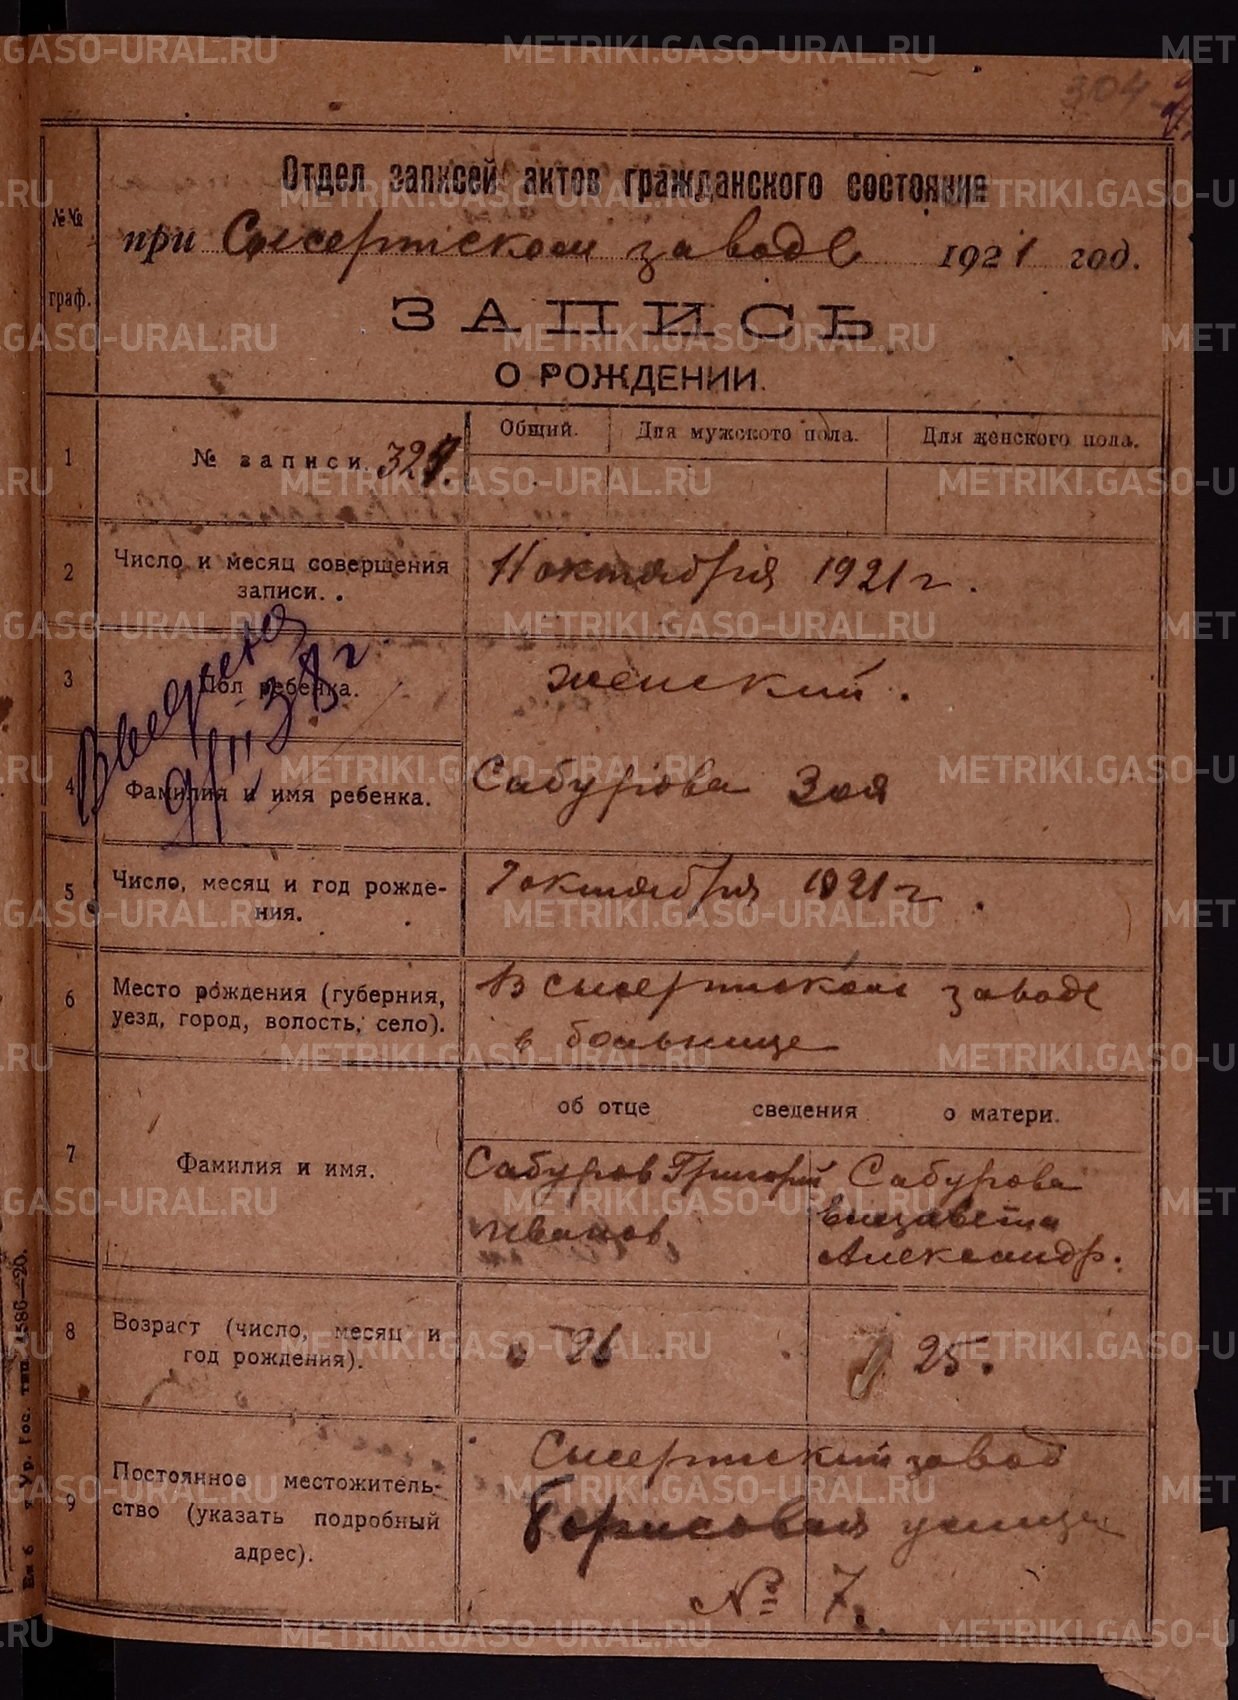 304
Отдел записей актов гражданского состояния
№№ граф.
при Сысертском заводе 1921 год.
ЗАПИСЬ
О РОЖДЕНИИ.
1 № записи 327. Общий. Для мужского пола. Для женского пола.
2 Число и месяц совершения записи. . 11 октября 1921 г.
3 Пол ребенка. женский.
4 Фамилия и имя ребенка. Сабурова Зоя
5 Число, месяц и год рожде-
ния. 7 октября 1921 г.
6 Место рождения (губерния, В сысертском заводе
уезд, город, волость, село). в больнице
об отце сведения о матери.
7 Фамилия и имя. Сабуров Григорий Сабурова
Иванов. Елизавета
Александр.
8 Возраст (число, месяц и
год рождения). 26 25.
9 Постоянное местожитель-
ство (указать подробный
адрес). Сысертский завод
Борисовая улица
№ 7.
METRIKI.GASO-URAL.RU